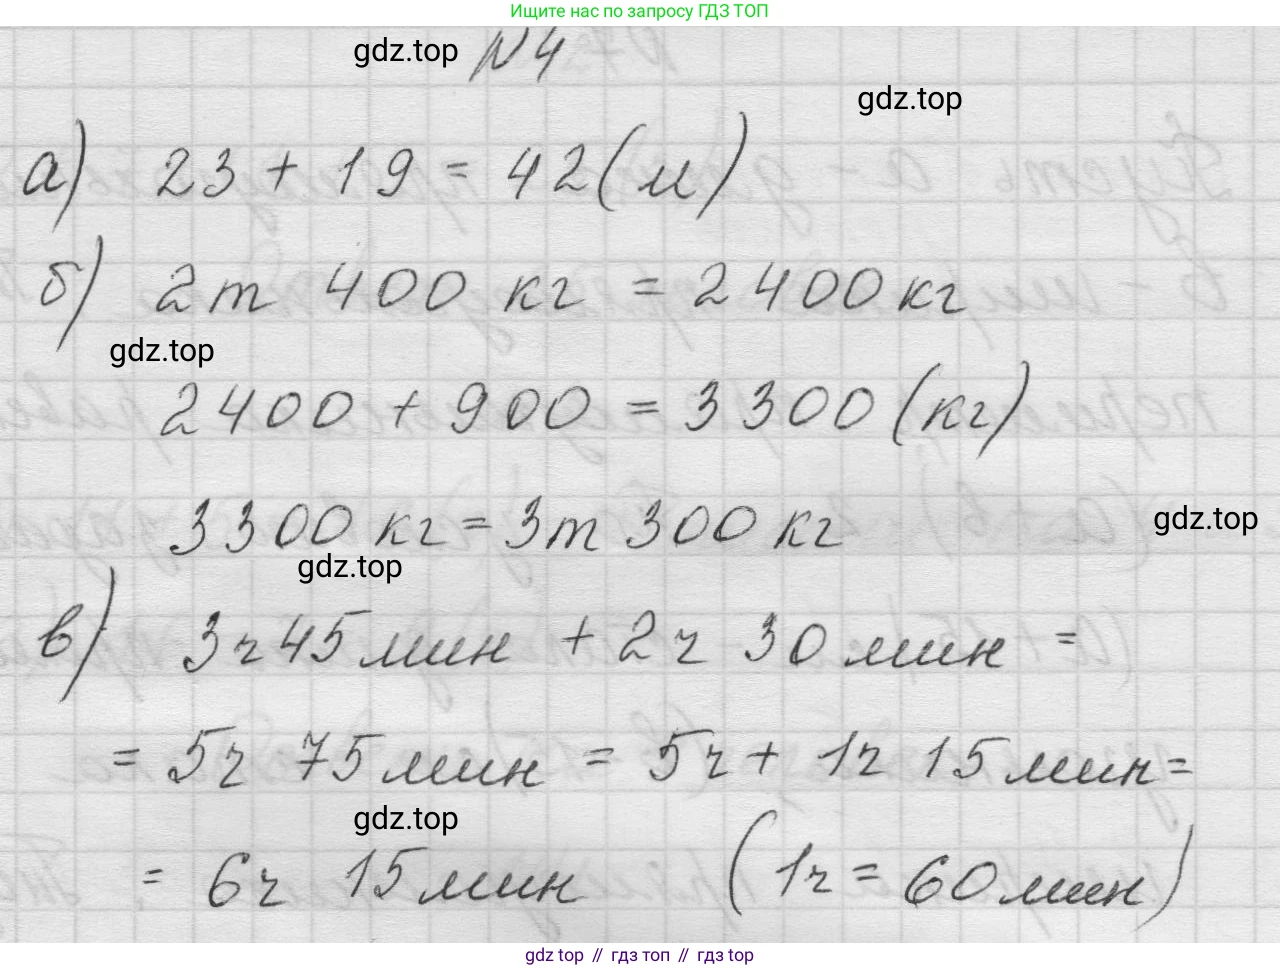 Ищите нас по запросу ГДЗ ТОП
gdz.top
№4
gdz.top
а) 23 + 19 = 42 (м)
б) 2 т 400 кг = 2400 кг
gdz.top
2400 + 900 = 3300 (кг)
3300 кг = 3 т 300 кг
gdz.top
gdz.top
в) 3 ч 45 мин + 2 ч 30 мин =
= 5 ч 75 мин = 5 ч + 1 ч 15 мин =
gdz.top
= 6 ч 15 мин (1 ч = 60 мин)
gdz top // гдз топ // гдз top